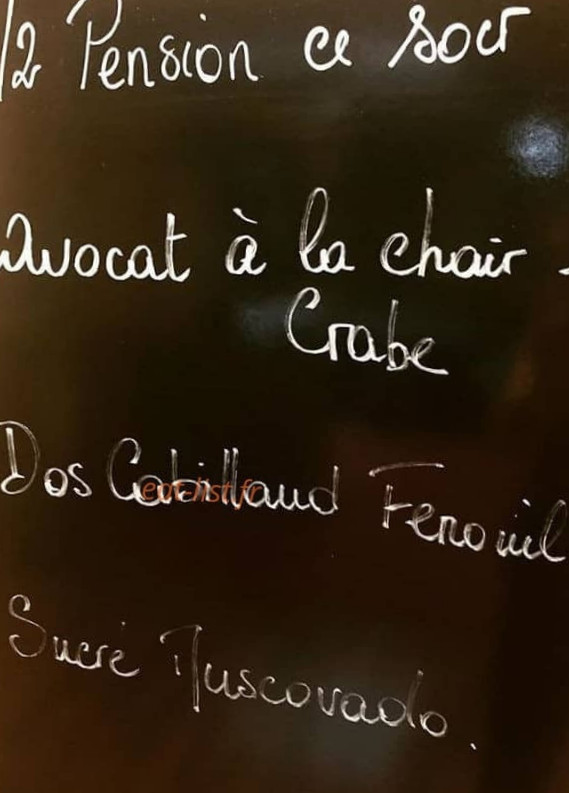 1/2 Pension ce soir
Avocat à la chair
Crabe
Dos Cabillaud Fenouil
eat-list.fr
Sucre Muscovado.